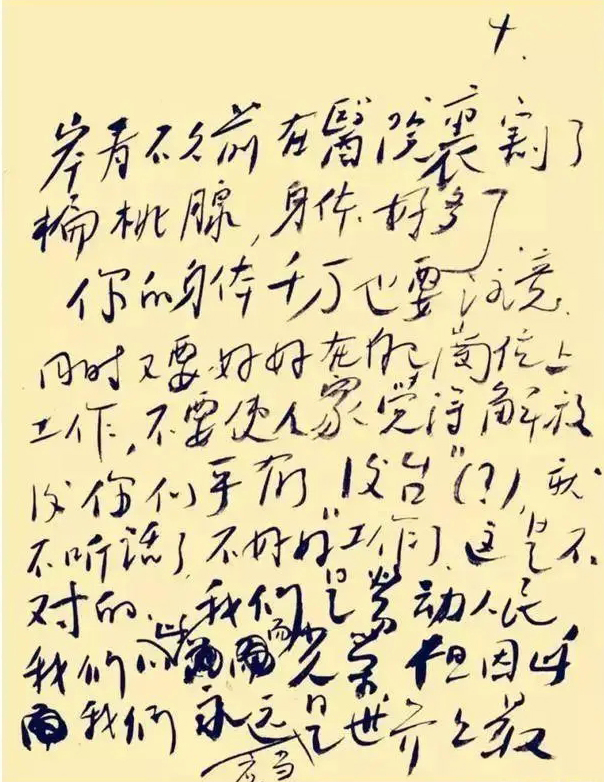 岸青不久前在醫院裹割了
扁桃腺,身体好多了
你的身体千万也要注意.
同时又要好好在自己崗位上
工作,不要使人家觉得解放
後你们乎有"後台"(?),就
不听話了,不好好工作了.这是不
对的.我们是劳动人民
我们以此而光荣 但因此
我们永远是世界上最